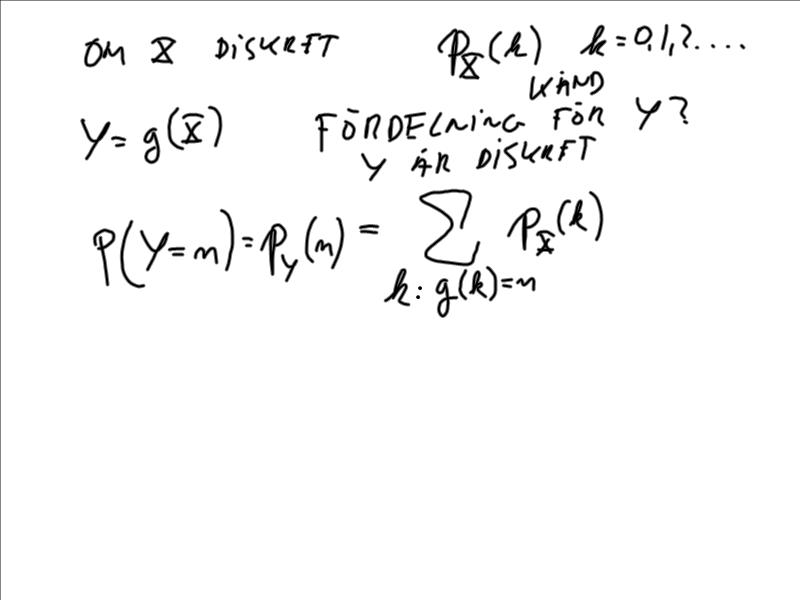 OM X DISKRET p_X(k) k=0,1,2....
KÄND
Y=g(X) FÖRDELNING FÖR Y?
Y ÄR DISKRET
P(Y=n)=p_Y(n)= Σ p_X(k)
k: g(k)=n